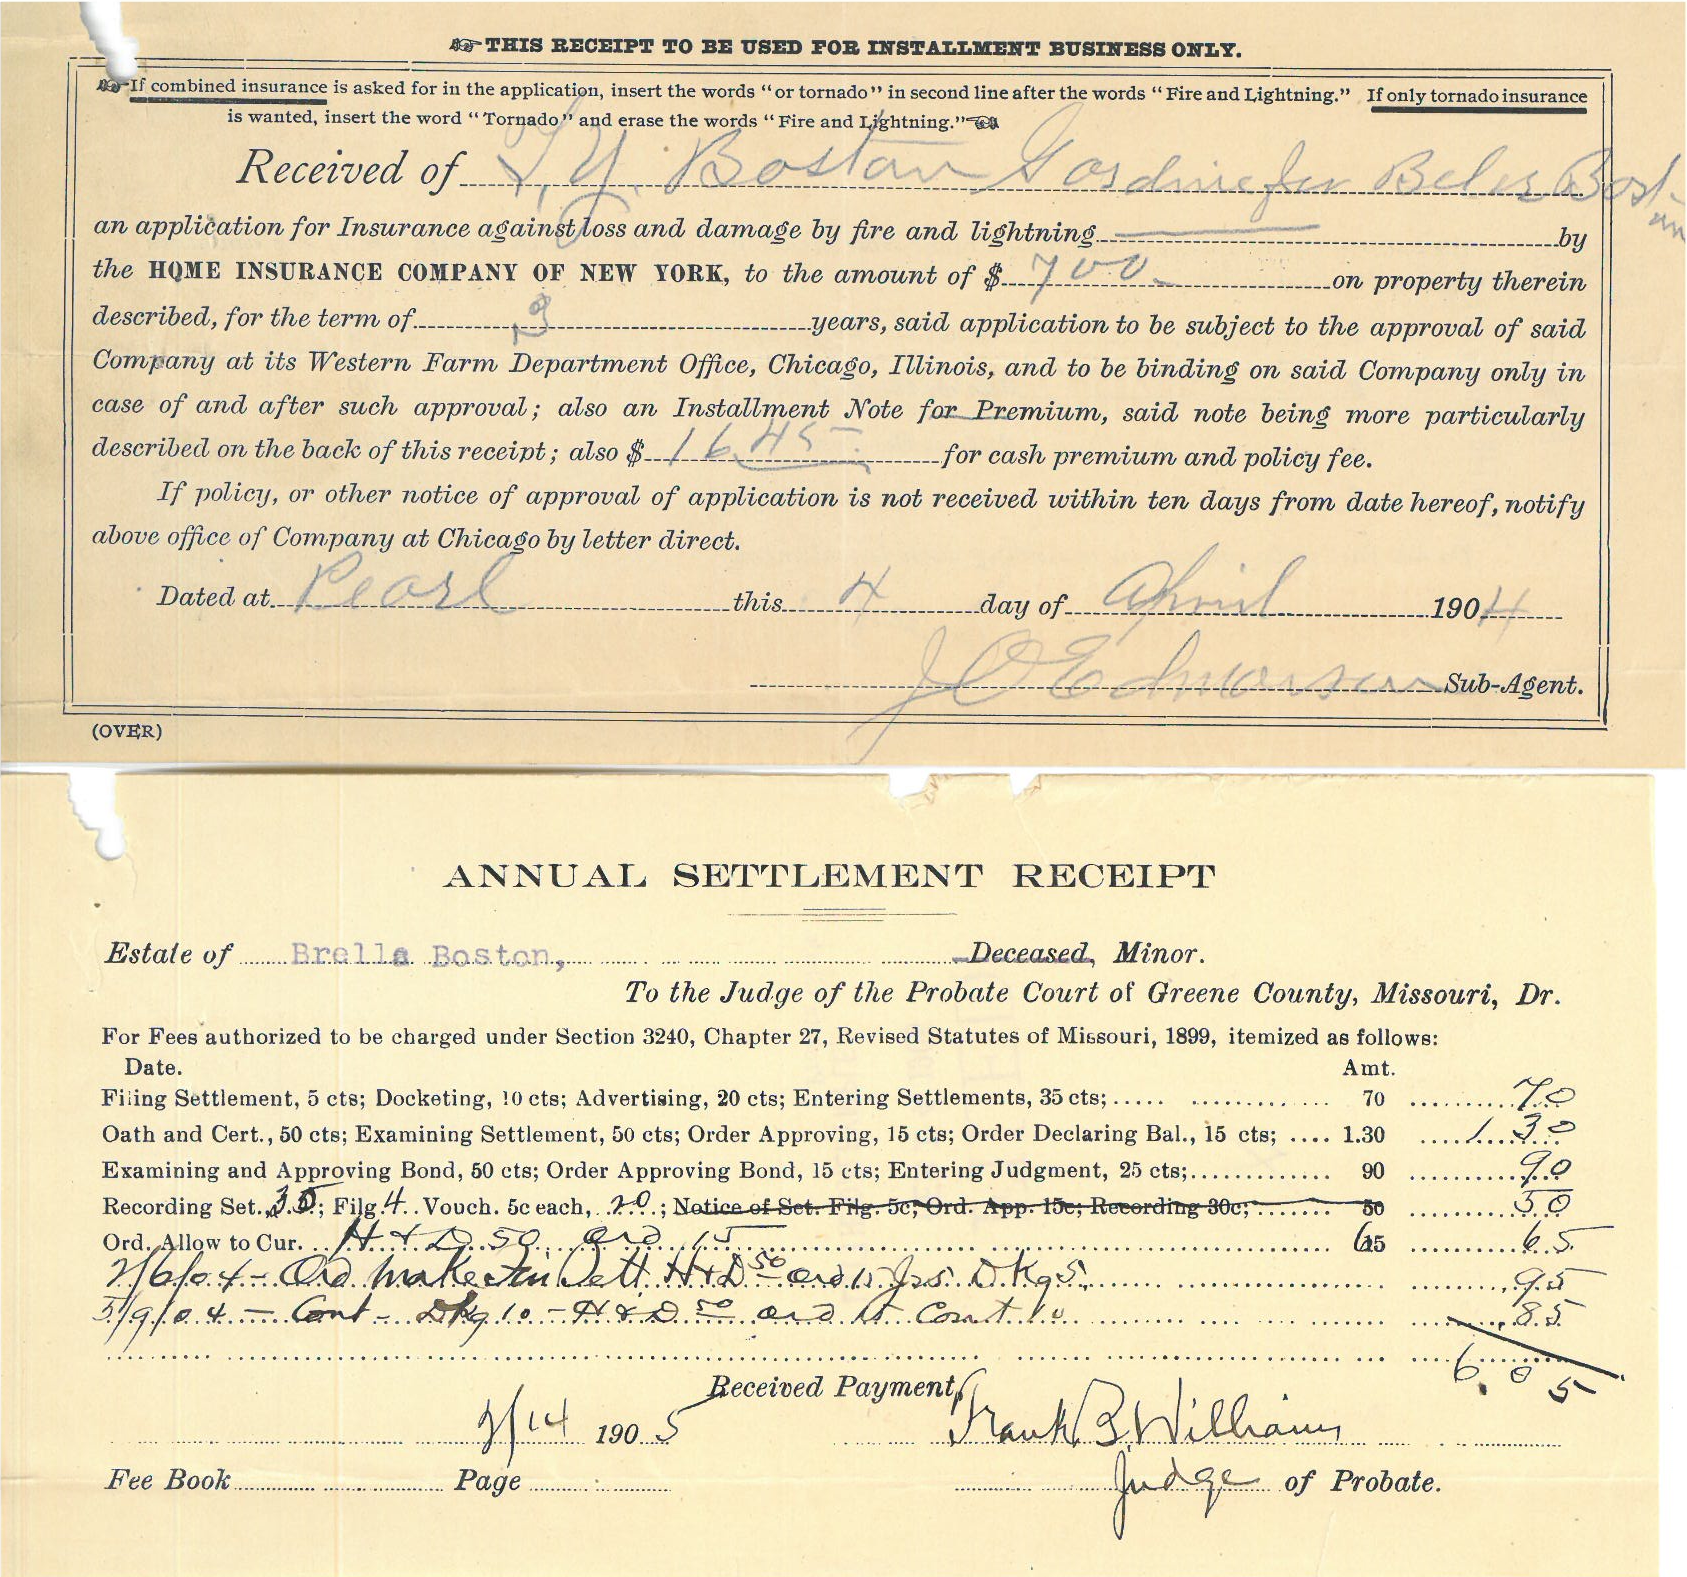 THIS RECEIPT TO BE USED FOR INSTALLMENT BUSINESS ONLY.
If combined insurance is asked for in the application, insert the words "or tornado" in second line after the words "Fire and Lightning." If only tornado insurance
is wanted, insert the word "Tornado" and erase the words "Fire and Lightning."
Received of T. Y. Boston Boston
an application for Insurance against loss and damage by fire and lightning by
the HOME INSURANCE COMPANY OF NEW YORK, to the amount of $ 700. on property therein
described, for the term of 3 years, said application to be subject to the approval of said
Company at its Western Farm Department Office, Chicago, Illinois, and to be binding on said Company only in
case of and after such approval; also an Installment Note for Premium, said note being more particularly
described on the back of this receipt; also $ 16.45 for cash premium and policy fee.
If policy, or other notice of approval of application is not received within ten days from date hereof, notify
above office of Company at Chicago by letter direct.
Dated at Pearl this 4 day of April 1904
J O Edmonson Sub-Agent.
(OVER)
ANNUAL SETTLEMENT RECEIPT
Estate of Brella Boston, Deceased, Minor.
To the Judge of the Probate Court of Greene County, Missouri, Dr.
For Fees authorized to be charged under Section 3240, Chapter 27, Revised Statutes of Missouri, 1899, itemized as follows:
Date. Amt.
Filing Settlement, 5 cts; Docketing, 10 cts; Advertising, 20 cts; Entering Settlements, 35 cts; 70 70
Oath and Cert., 50 cts; Examining Settlement, 50 cts; Order Approving, 15 cts; Order Declaring Bal., 15 cts; 1.30 1 30
Examining and Approving Bond, 50 cts; Order Approving Bond, 15 cts; Entering Judgment, 25 cts; 90 90
Recording Set. ; Filg 4 Vouch. 5c each, 20; Notice of Set. Filg. 5c; Ord. App. 15c; Recording 30c; 50 50
Ord. Allow to Cur. H & D 50, ord 15 65 65
2/6/04 - Ord make Sett. H & D 50 - ord 15 Dkg 5 95
5/9/04 - Cont - Dkg 10 - H & D 50 ord Cont 10 85
6.05
Received Payment,
2/14 1905 Frank B. Williams
Fee Book Page Judge of Probate.